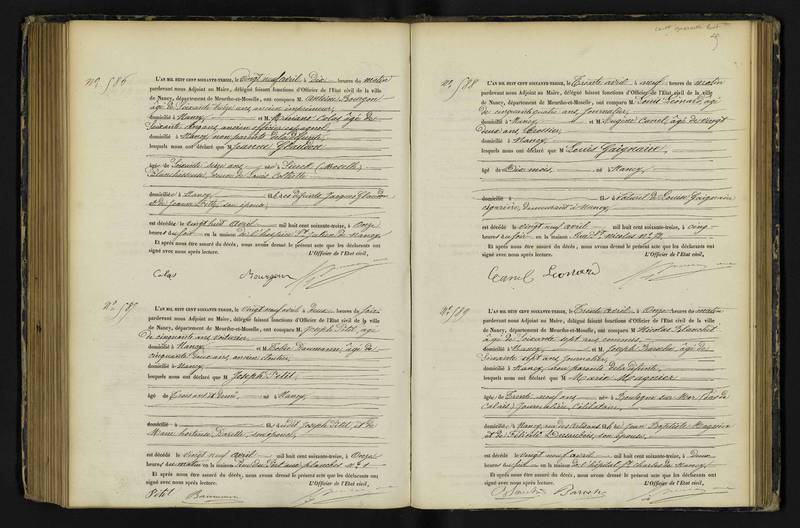 cent quarante huit
No. 586
L'AN MIL HUIT CENT SOIXANTE-TREIZE, le vingt neuf avril à Dix heures du matin
pardevant nous Adjoint au Maire, délégué faisant fonctions d'Officier de l'Etat civil de la ville
de Nancy, département de Meurthe-et-Moselle, ont comparu M. Antoine Bourgon
âgé de Soixante treize ans ancien imprimeur,
domicilié à Nancy et M. Colas âgé de
Soixante ans ancien officier espagnol,
domicilié à Nancy non parents de la défunte,
lesquels nous ont déclaré que M Jeanne Glaudon
âgée de Soixante seize ans née à Sierck (Moselle)
Blanchisseuse, veuve de Louis
domiciliée à Nancy des défunts Jacques Glaudon
et de Jeanne son épouse,
est décédée le vingt huit avril mil huit cent soixante-treize, à Onze
heures du soir en la maison de l'hospice St Julien de Nancy
Et après nous être assuré du décès, nous avons dressé le présent acte que les déclarants ont
signé avec nous après lecture. L'Officier de l'Etat civil,
Colas Bourgon
No. 587
L'AN MIL HUIT CENT SOIXANTE-TREIZE, le vingt neuf avril à Deux heures du soir
pardevant nous Adjoint au Maire, délégué faisant fonctions d'Officier de l'Etat civil de la ville
de Nancy, département de Meurthe-et-Moselle, ont comparu M. Joseph Petit, âgé
de cinquante ans voiturier
domicilié à Nancy et M. Baumann, âgé de
cinquante deux ans ancien
domicilié à Nancy
lesquels nous ont déclaré que M Joseph Petit
âgé de Trois ans et demi né à Nancy
domicilié à du dit Joseph Petit, et de
Marie hortense son épouse,
est décédé le vingt neuf avril mil huit cent soixante-treize, à Onze
heures du matin en la maison aux planches no. 1
Et après nous être assuré du décès, nous avons dressé le présent acte que les déclarants ont
signé avec nous après lecture. L'Officier de l'Etat civil,
Petit Baumann
No. 588
L'AN MIL HUIT CENT SOIXANTE-TREIZE, le Trente avril à neuf heures du matin
pardevant nous Adjoint au Maire, délégué faisant fonctions d'Officier de l'Etat civil de la ville
de Nancy, département de Meurthe-et-Moselle, ont comparu M. Louis Léonard, âgé
de cinquante quatre ans Journalier,
domicilié à Nancy et M. Eugène Canel, âgé de vingt
Deux ans
domicilié à Nancy
lesquels nous ont déclaré que M Louis Gaignaire
âgé de Dix mois, né à Nancy
domicilié à Naturel de Louise Gaignaire
demeurant à Nancy
est décédé le vingt neuf avril mil huit cent soixante-treize, à cinq
heures du soir en la maison Rue St. Nicolas
Et après nous être assuré du décès, nous avons dressé le présent acte que les déclarants ont
signé avec nous après lecture. L'Officier de l'Etat civil,
Canel Leonard
No. 589
L'AN MIL HUIT CENT SOIXANTE-TREIZE, le Trente avril, à Onze heures du matin
pardevant nous Adjoint au Maire, délégué faisant fonctions d'Officier de l'Etat civil de la ville
de Nancy, département de Meurthe-et-Moselle, ont comparu M. Nicolas Blanchet
âgé de Soixante sept ans
domicilié à Nancy et M. Joseph Baroche âgé de
Soixante sept ans Journalier,
domicilié à Nancy, non parents de la défunte,
lesquels nous ont déclaré que M Marie Magnier
âgée de Trente neuf ans née à Boulogne sur Mer (Pas de
Calais) Journalière, Célibataire,
domiciliée à Nancy, rue des Artisans de Jean Baptiste Magnier
et de Félicité son épouse,
est décédée le vingt neuf avril mil huit cent soixante-treize, à Deux
heures du soir en la maison de l'hôpital St. Charles de Nancy
Et après nous être assuré du décès, nous avons dressé le présent acte que les déclarants ont
signé avec nous après lecture. L'Officier de l'Etat civil,